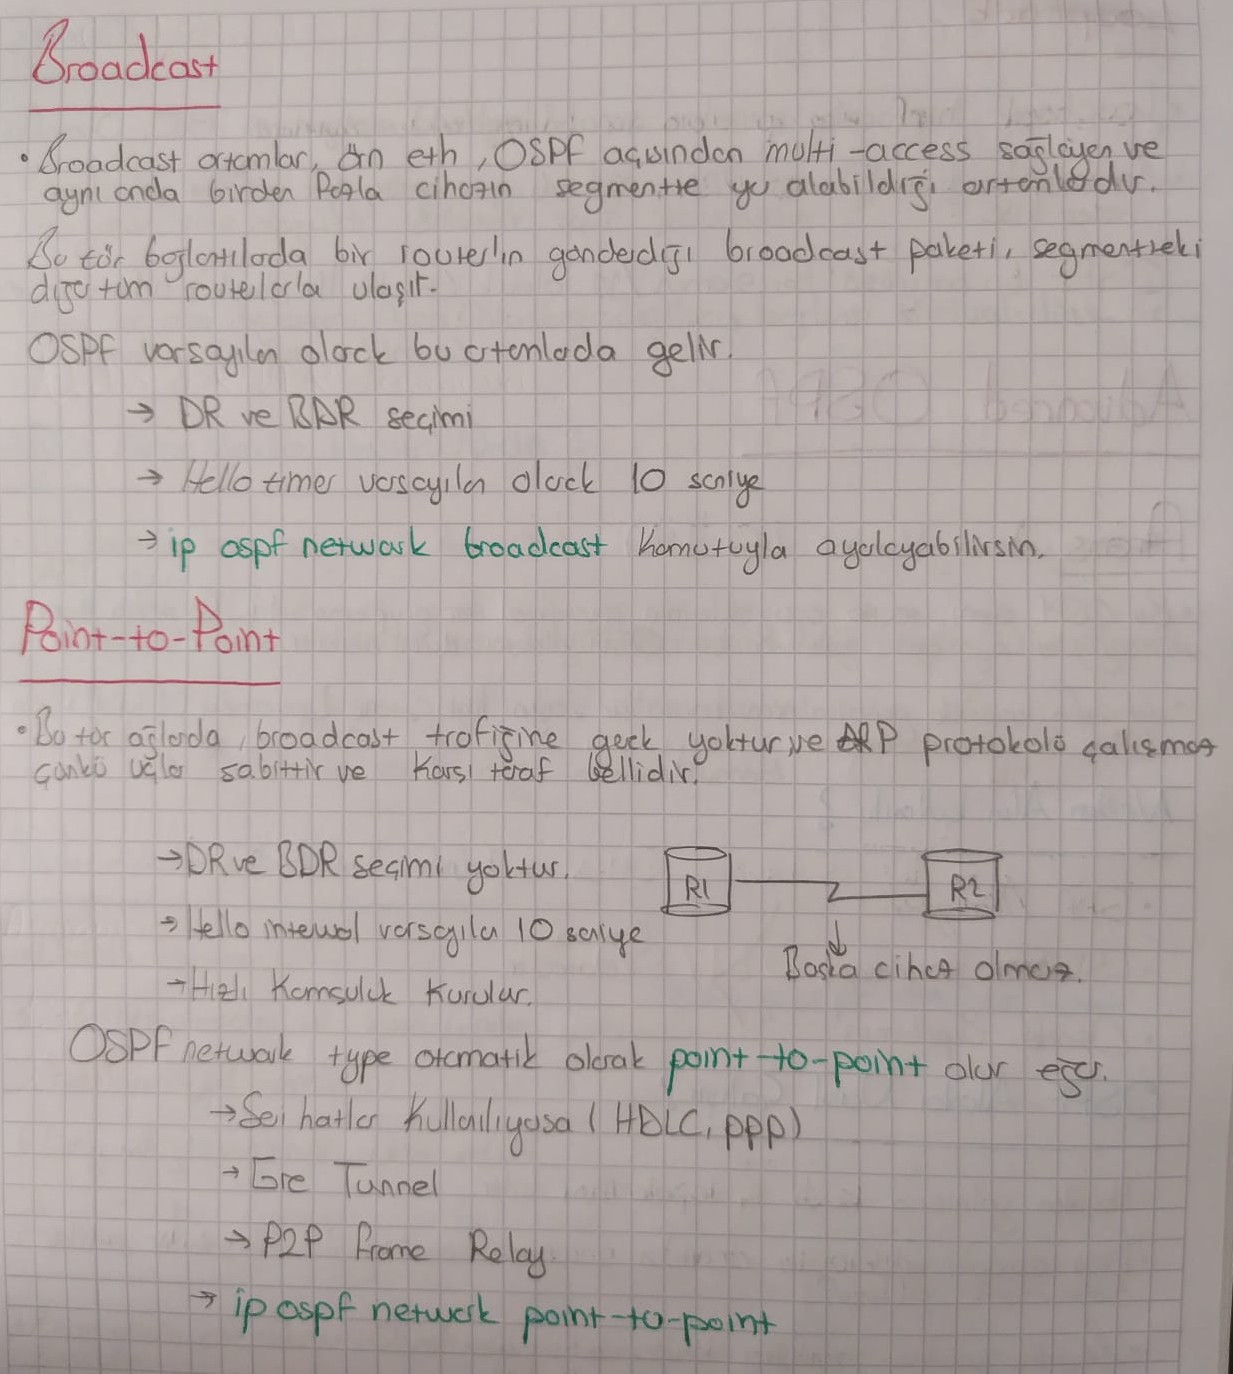 Broadcast
• Broadcast ortamlar, Örn eth, OSPF açısından multi-access sağlayan ve
aynı anda birden fazla cihazın segmentte yer alabildiği ortamlardır.
Bu tür bağlantılarda bir router'ın gönderdiği broadcast paketi, segmentteki
diğer tüm routerlarla ulaşır.
OSPF varsayılan olarak bu ortamlada gelir.
→ DR ve BDR seçimi
→ Hello timer varsayılan olarak 10 saniye
→ ip ospf network broadcast komutuyla ayalayabilirsin.
Point-to-Point
• Bu tür ağlarda, broadcast trafiğine gerek yoktur ve ARP protokolü çalışmaz
çünkü uçlar sabittir ve karşı taraf bellidir.
→ DR ve BDR seçimi yoktur.
R1 R2
→ Hello interval varsayılan 10 saniye
Başka cihaz olmaz.
→ Hızlı Komşuluk Kurulur.
OSPF network type otomatik olarak point-to-point olur eğer.
→ Seri hatlar kullanılıyosa (HDLC, PPP)
→ Gre Tunnel
→ P2P frame Relay
→ ip ospf network point-to-point